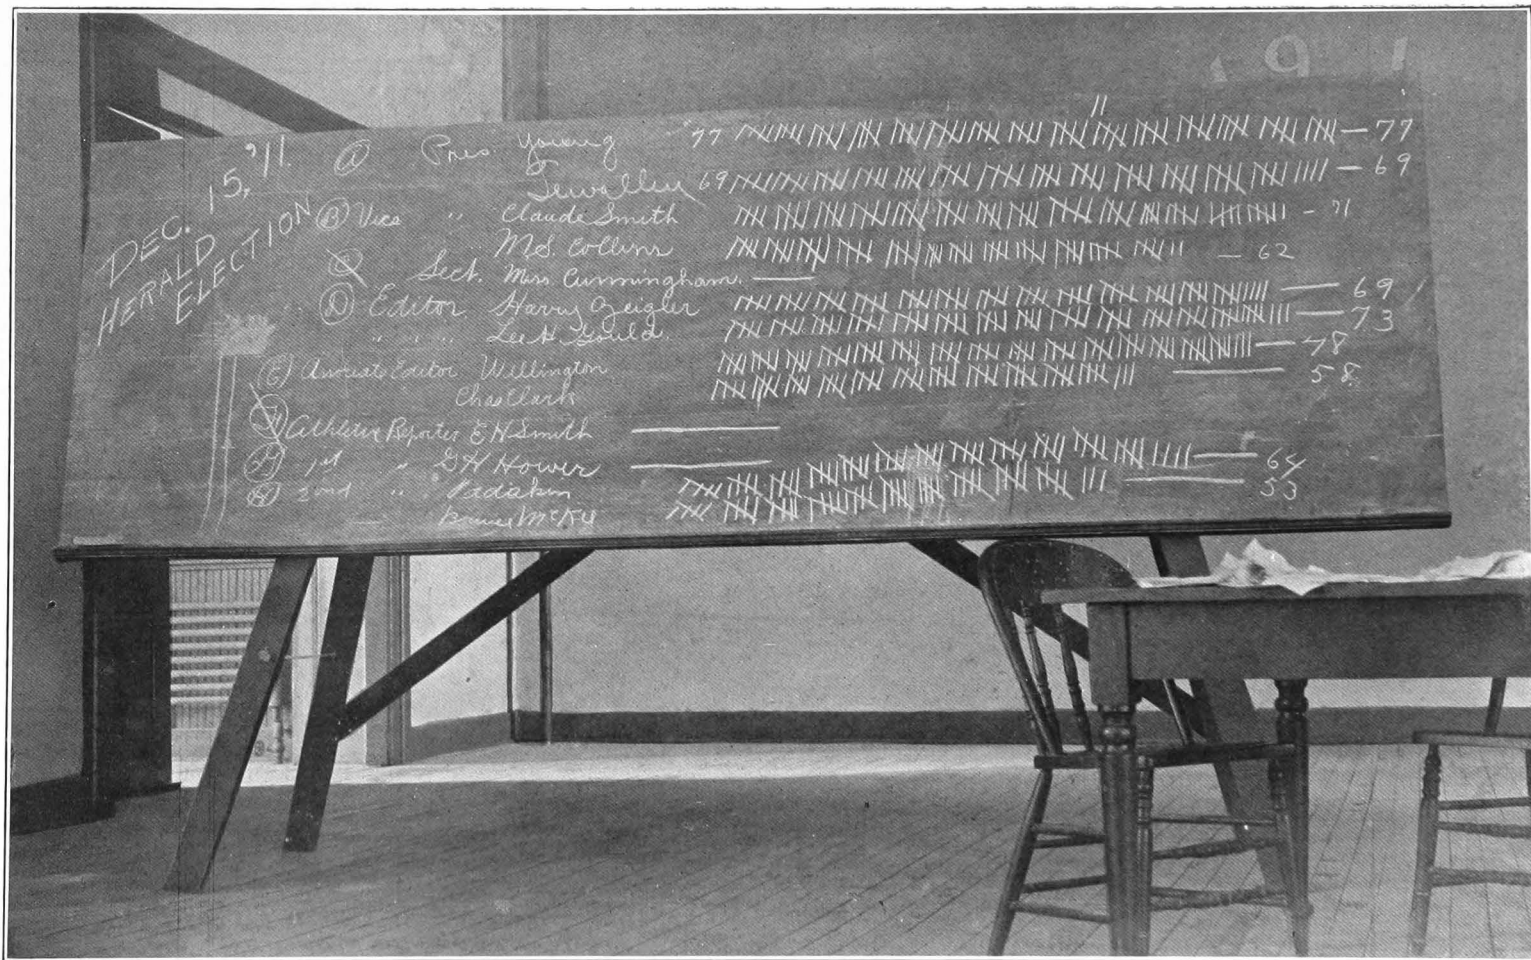 DEC. 15, '11.
HERALD
ELECTION
A Pres. Young 77 — 77
69 — 69
B Vice " Claude Smith — 71
M.S. Collins — 62
C Sect. Miss Cunningham. —
D Editor Harry Zeigler — 69
" " " Lee H Gould. — 73
E Associate Editor Wellington — 78
Chas Clark — 58
Athletic Reporter E H Smith —
1st " G H Hower —
2nd " — 64
Bruce McKee — 53
191